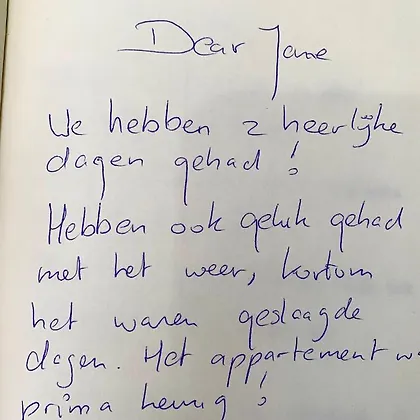 Dear Jane
We hebben 2 heerlijke
dagen gehad!
Hebben ook geluk gehad
met het weer, kortom
het waren geslaagde
dagen. Het appartement
prima